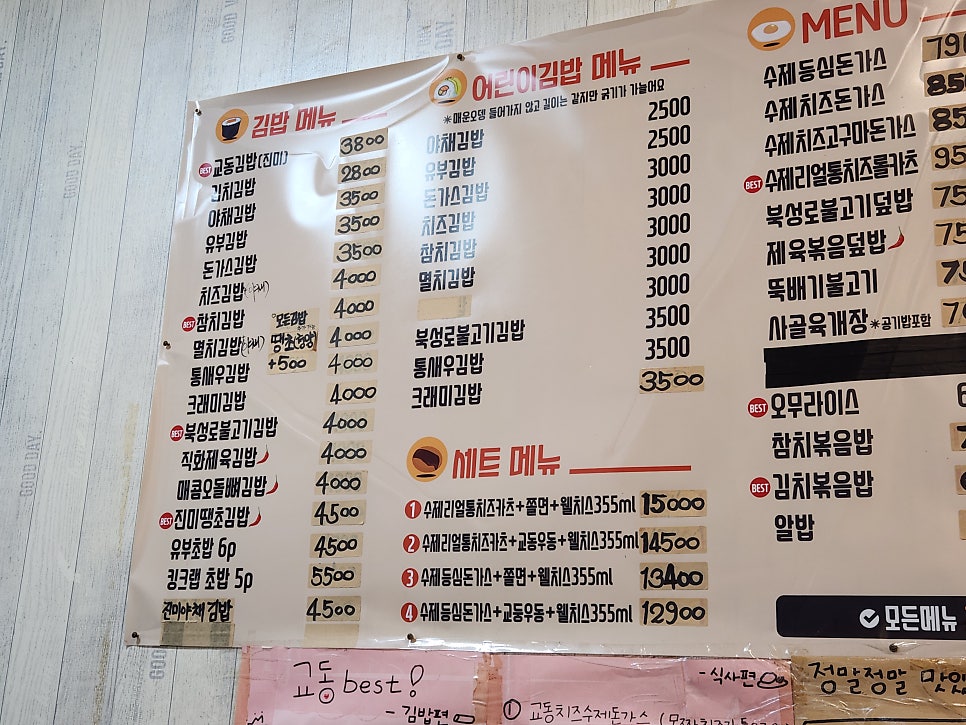 김밥 메뉴
BEST 교동김밥(진미) 3800
김치김밥 2800
야채김밥 3500
유부김밥 3500
돈가스김밥 3500
치즈김밥(야채) 4000
BEST 참치김밥 4000
멸치김밥(야채) 4000
통새우김밥 4000
크래미김밥 4000
BEST 북성로불고기김밥 4000
직화제육김밥 4000
매콤오돌뼈김밥 4000
BEST 진미땡초김밥 4500
유부초밥 6p 4500
킹크랩 초밥 5p 5500
진미야채김밥 4500
모든김밥
+500
어린이김밥 메뉴
*매운오뎅 들어가지 않고 길이는 같지만 굵기가 가늘어요
야채김밥 2500
유부김밥 2500
돈가스김밥 3000
치즈김밥 3000
참치김밥 3000
멸치김밥 3000
3000
북성로불고기김밥 3500
통새우김밥 3500
크래미김밥 3500
세트 메뉴
1 수제리얼통치즈카츠+쫄면+웰치스355ml 15000
2 수제리얼통치즈카츠+교동우동+웰치스355ml 14500
3 수제등심돈가스+쫄면+웰치스355ml 13400
4 수제등심돈가스+교동우동+웰치스355ml 12900
MENU
수제등심돈가스
수제치즈돈가스
수제치즈고구마돈가스
BEST 수제리얼통치즈롤카츠
북성로불고기덮밥
제육볶음덮밥
뚝배기불고기
사골육개장 *공기밥포함
BEST 오무라이스
참치볶음밥
BEST 김치볶음밥
알밥
모든메뉴
교동best!
-김밥편
-식사편
① 교동치즈수제돈가스
정말정말
GOOD DAY.
GOOD DAY.
GOOD DAY.